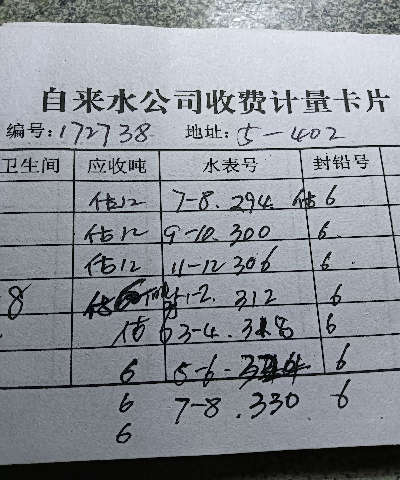 自来水公司收费计量卡片
编号:172738 地址:5-402
卫生间 应收吨 水表号 封铅号
估12 7-8.294 估6
估12 9-10.300 6
估12 11-12 306 6
8 估6 1-2.312 6
估6 3-4.318 6
6 5-6- 6
6 7-8.330 6
6